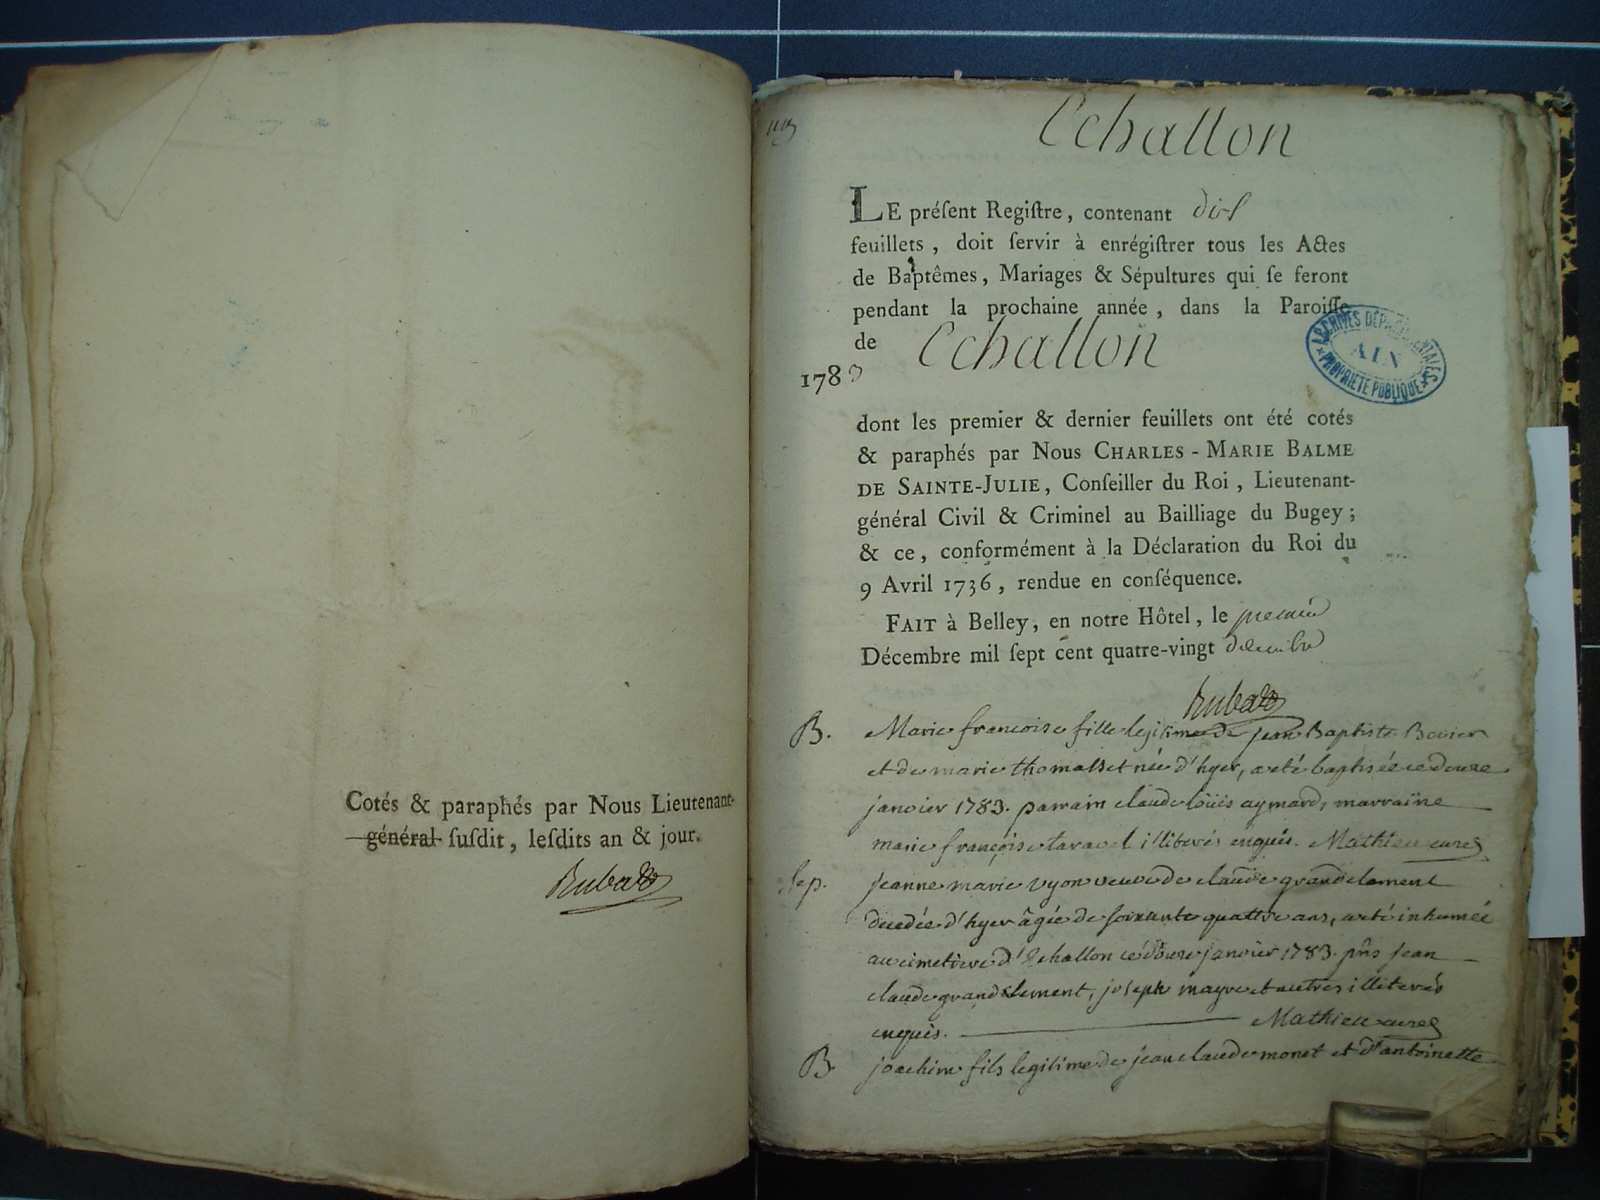 Cotés & paraphés par Nous Lieutenant-
général susdit, lesdits an & jour.
Rubat
Echallon
LE présent Registre, contenant dix
feuillets, doit servir à enrégistrer tous les Actes
de Baptêmes, Mariages & Sépultures qui se feront
pendant la prochaine année, dans la Paroisse
de Echallon
1783
ARCHIVES DÉPARTEMENTALES
AIN
PROPRIÉTÉ PUBLIQUE
dont les premier & dernier feuillets ont été cotés
& paraphés par Nous CHARLES-MARIE BALME
DE SAINTE-JULIE, Conseiller du Roi, Lieutenant-
général Civil & Criminel au Bailliage du Bugey;
& ce, conformément à la Déclaration du Roi du
9 Avril 1736, rendue en conséquence.
FAIT à Belley, en notre Hôtel, le premier
Décembre mil sept cent quatre-vingt
Rubat
B. Marie francoise fille legitime de jean Baptiste
et de marie thomasset née d'hyer, a eté baptisée ce douze
janvier 1783. parrain claude loüis aymard, marraine
marie françoise tavavel illiterés enquis. Mathieu curé
Sep. jeanne marie vyon veuve de claude grandclement
decedée d'hyer âgée de soixante quattre ans, a eté inhumée
au cimetiere d'Echallon ce douze janvier 1783. pñs jean
claude grandclement, joseph mayre et autres illiterés
enquis. Mathieu curé
B. joachim fils legitime de jean claude monet et d'antoinette